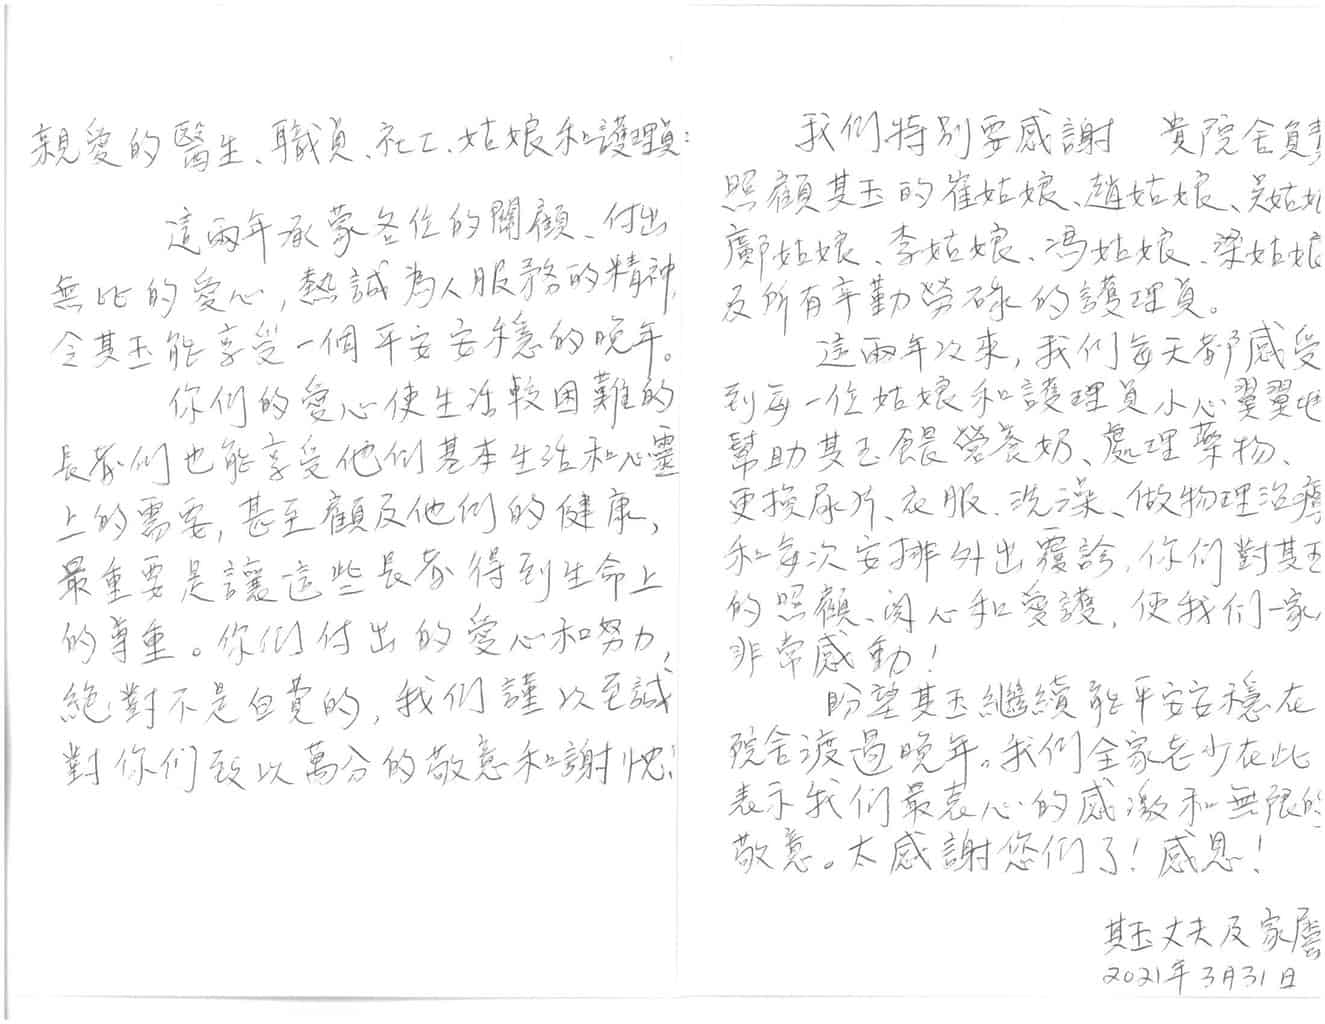 親愛的醫生、職員、社工、姑娘和護理員:
這兩年承蒙各位的關顧、付出
無比的愛心,熱誠為人服務的精神,
令其玉能享受一個平安安穩的晚年。
你們的愛心使生活較困難的
長者們也能享受他们基本生活和心靈
上的需要,甚至顧及他們的健康,
最重要是讓這些長者得到生命上
的尊重。你们付出的愛心和努力,
絕對不是白費的,我们謹以至誠
對你們致以萬分的敬意和謝忱!
我們特別要感謝 貴院舍負責
照顧其玉的崔姑娘、趙姑娘、吳姑娘
鄺姑娘、李姑娘、馮姑娘、梁姑娘
及所有辛勤勞碌的護理員。
這兩年以來,我们每天都感受
到每一位姑娘和護理員小心翼翼地
幫助其玉餵營養奶、處理藥物、
更換尿片、衣服、洗澡、做物理治療
和每次安排外出覆診,你们對其玉
的照顧、関心和愛護,使我们一家
非常感動!
盼望其玉繼續能平安安穩在
院舍渡過晚年。我们全家老少在此
表示我们最衷心的感激和無限的
敬意。太感謝您们了!感恩!
其玉丈夫及家屬
2021年3月31日